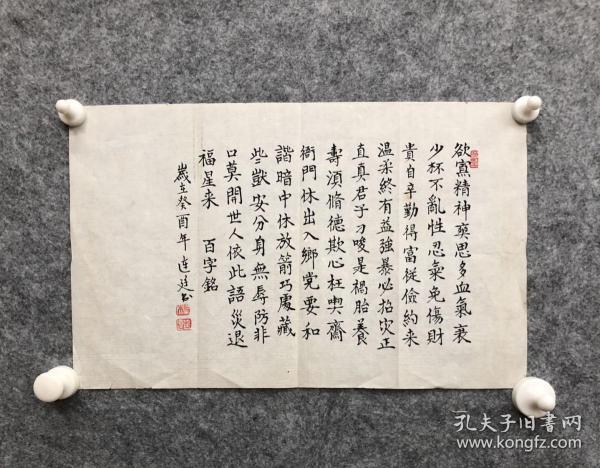 欲寡精神爽思多血氣衰
少杯不亂性忍氣免傷財
貴自辛勤得富從儉約來
温柔終有益強暴必招灾正
直真君子刁唆是禍胎養
壽須脩德欺心枉喫齋
衙門休出入鄉党要和
諧暗中休放箭巧處藏
些獃安分身無辱防非
口莫開世人依此語災退
福星来 百字銘
歲在癸酉年連廷书
孔夫子旧书网
www.kongfz.com